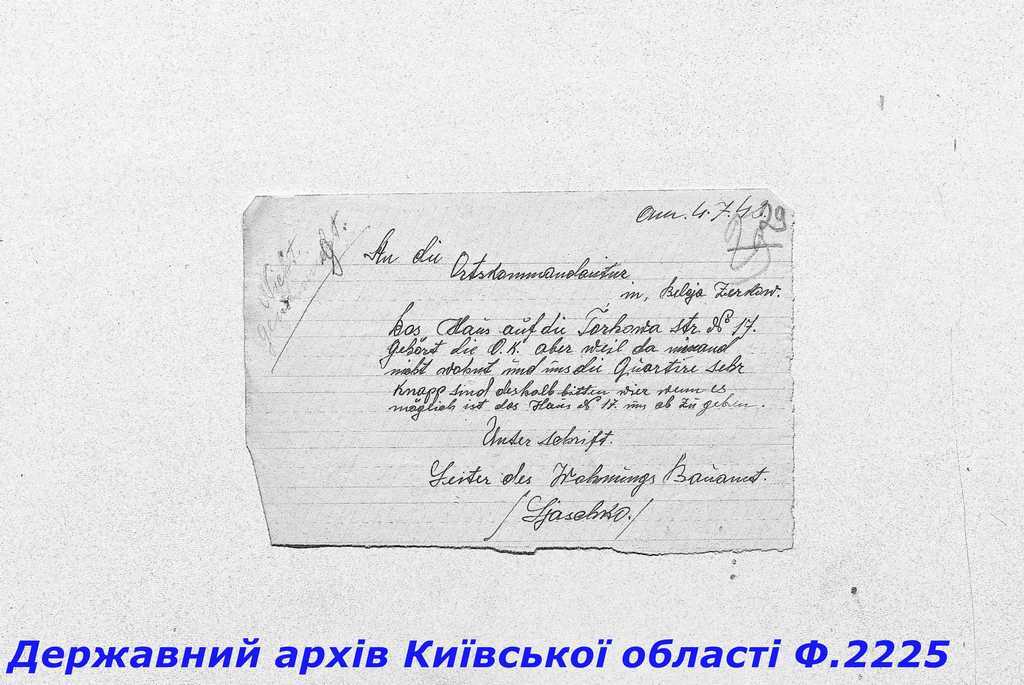 am. 4.7.42.
29
Nicht
An die
Ortskommandantur
in, Belaja Zerkow.
Das Haus auf die Torhowa str. № 17.
Gehört die O.K. aber weil da nimand
nicht wohnt und uns die Quartire sehr
Knapp sind deshalb bitten wier wenn es
möglich ist das Haus № 17. uns ab zu geben.
Unter schrift.
Leiter des Wohnungs Bauamt.
/Ljaschko./
Державний архів Київської області Ф.2225